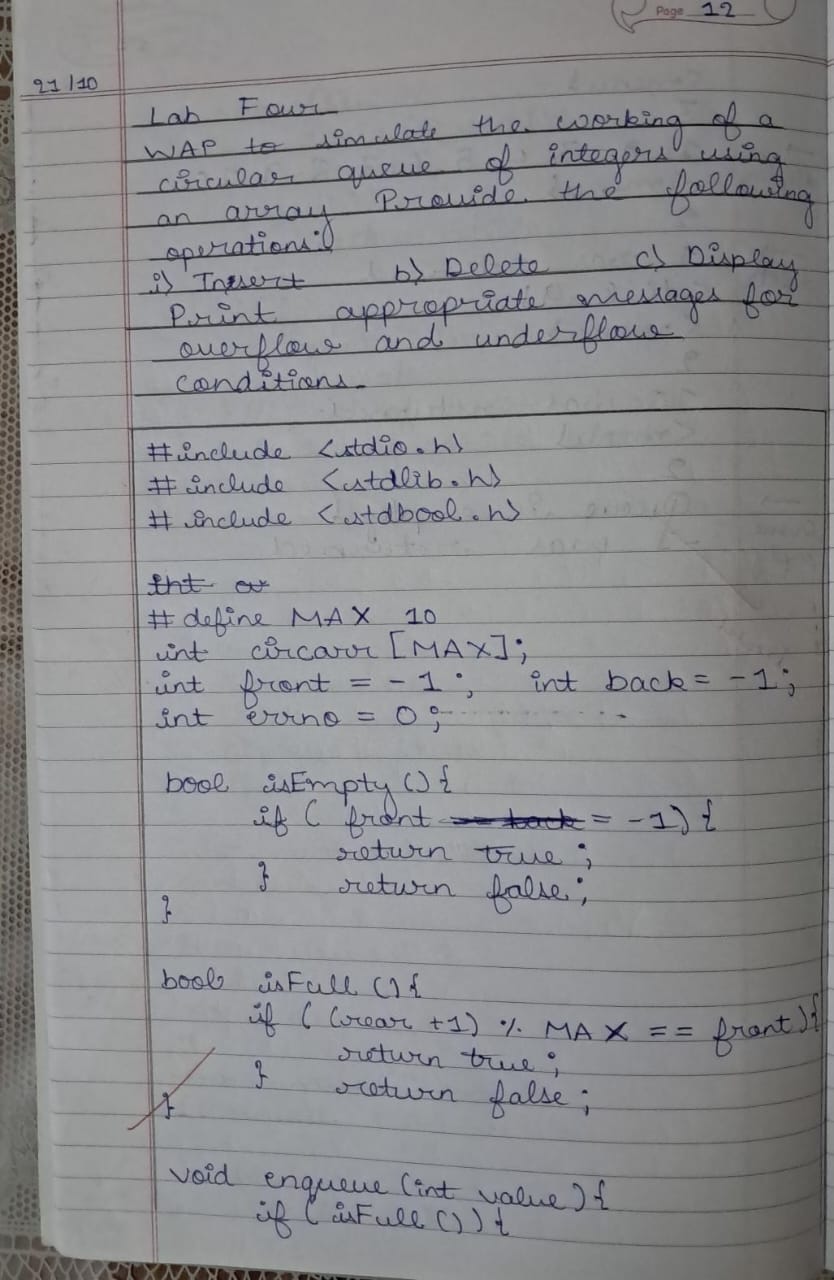 Page 12
21/10
Lab Four
WAP to simulate the working of a
circular queue of integers using
an array. Provide the following
operations:
i) Insert b) Delete c) Display
Print appropriate messages for
overflow and underflow
conditions.
#include <stdio.h>
#include <stdlib.h>
#include <stdbool.h>
int
#define MAX 10
int circarr [MAX];
int front = -1; int back = -1;
int errno = 0;
bool isEmpty () {
if ( front == back = -1) {
return true;
} return false;
}
bool isFull () {
if ( (rear +1) % MAX == front) {
return true;
} return false;
}
void enqueue (int value) {
if (isFull ()) {